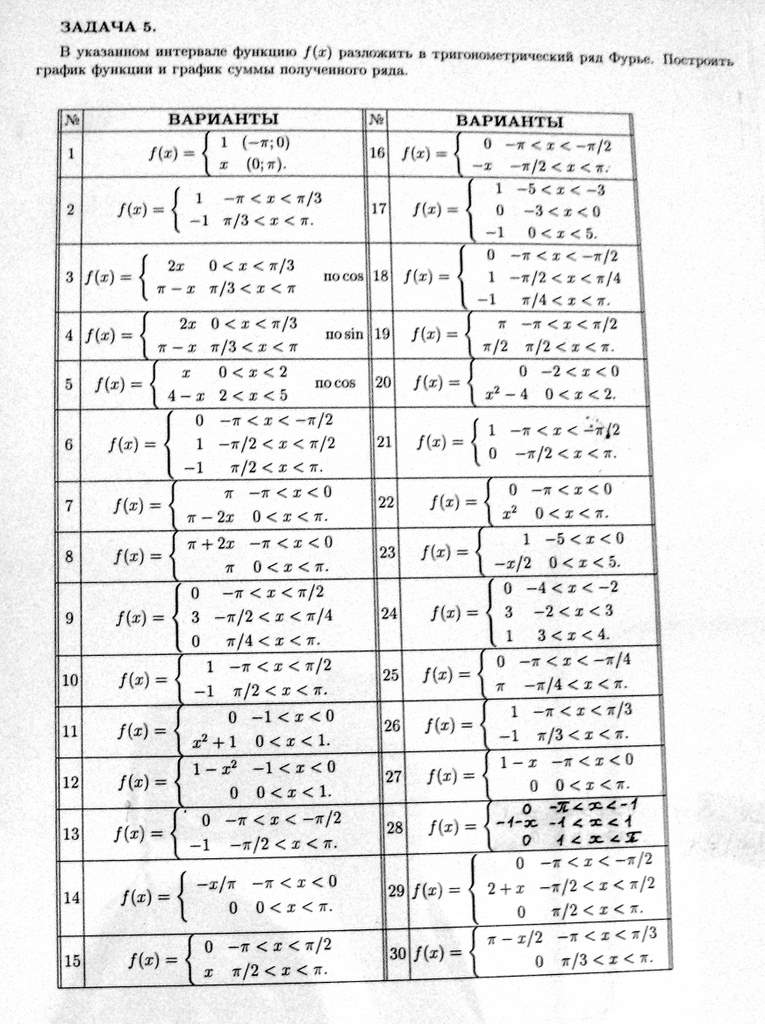 ЗАДАЧА 5.
В указанном интервале функцию f(x) разложить в тригонометрический ряд Фурье. Построить
график функции и график суммы полученного ряда.
№ ВАРИАНТЫ № ВАРИАНТЫ
1 f(x) = { 1 (−π; 0)
x (0; π).
16 f(x) = { 0 −π < x < −π/2
−x −π/2 < x < π.
2 f(x) = { 1 −π < x < π/3
−1 π/3 < x < π.
17 f(x) = { 1 −5 < x < −3
0 −3 < x < 0
−1 0 < x < 5.
3 f(x) = { 2x 0 < x < π/3
π − x π/3 < x < π
по cos
18 f(x) = { 0 −π < x < −π/2
1 −π/2 < x < π/4
−1 π/4 < x < π.
4 f(x) = { 2x 0 < x < π/3
π − x π/3 < x < π
по sin
19 f(x) = { π −π < x < π/2
π/2 π/2 < x < π.
5 f(x) = { x 0 < x < 2
4 − x 2 < x < 5
по cos
20 f(x) = { 0 −2 < x < 0
x² − 4 0 < x < 2.
6 f(x) = { 0 −π < x < −π/2
1 −π/2 < x < π/2
−1 π/2 < x < π.
21 f(x) = { 1 −π < x < −π/2
0 −π/2 < x < π.
7 f(x) = { π −π < x < 0
π − 2x 0 < x < π.
22 f(x) = { 0 −π < x < 0
x² 0 < x < π.
8 f(x) = { π + 2x −π < x < 0
π 0 < x < π.
23 f(x) = { 1 −5 < x < 0
−x/2 0 < x < 5.
9 f(x) = { 0 −π < x < π/2
3 −π/2 < x < π/4
0 π/4 < x < π.
24 f(x) = { 0 −4 < x < −2
3 −2 < x < 3
1 3 < x < 4.
10 f(x) = { 1 −π < x < π/2
−1 π/2 < x < π.
25 f(x) = { 0 −π < x < −π/4
π −π/4 < x < π.
11 f(x) = { 0 −1 < x < 0
x² + 1 0 < x < 1.
26 f(x) = { 1 −π < x < π/3
−1 π/3 < x < π.
12 f(x) = { 1 − x² −1 < x < 0
0 0 < x < 1.
27 f(x) = { 1 − x −π < x < 0
0 0 < x < π.
13 f(x) = { 0 −π < x < −π/2
−1 −π/2 < x < π.
28 f(x) = { 0 -π < x < -1
-1-x -1 < x < 1
0 1 < x < π
14 f(x) = { −x/π −π < x < 0
0 0 < x < π.
29 f(x) = { 0 −π < x < −π/2
2 + x −π/2 < x < π/2
0 π/2 < x < π.
15 f(x) = { 0 −π < x < π/2
x π/2 < x < π.
30 f(x) = { π − x/2 −π < x < π/3
0 π/3 < x < π.